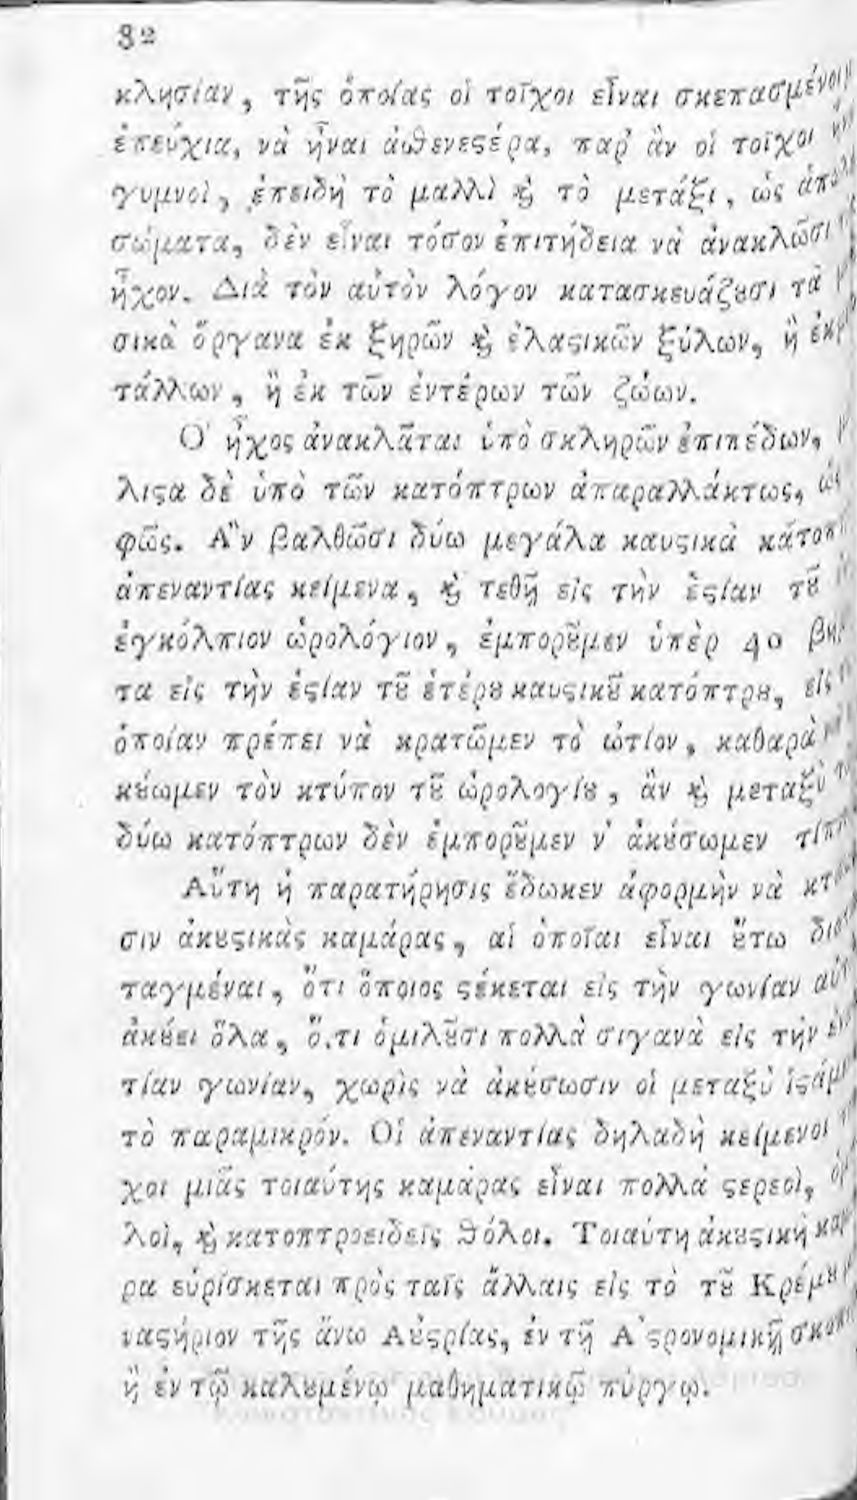 32
κλησίαν, τῆς ὁποίας οἱ τοῖχοι εἶναι σκεπασμένοι
ἐπεύχια, νὰ ἦναι ἀσθενεϛέρα, παρ' ἂν οἱ τοῖχοι
γυμνοὶ, ἐπειδὴ τὸ μαλλὶ ϗ τὸ μετάξι, ὡς
σώματα, δὲν εἶναι τόσον ἐπιτήδεια νὰ ἀνακλῶσι
ἦχον. Διὰ τὸν αὐτὸν λόγον κατασκευάζȣσι τὰ
σικὰ ὄργανα ἐκ ξηρῶν ϗ ἐλαϛικῶν ξύλων, ἢ
τάλλων, ἢ ἐκ τῶν ἐντέρων τῶν ζώων.
Ο' ἦχος ἀνακλᾶται ὑπὸ σκληρῶν ἐπιπέδων,
λιϛα δὲ ὑπὸ τῶν κατόπτρων ἀπαραλλάκτως,
φῶς. Α"ν βαλθῶσι δύω μεγάλα καυϛικὰ
ἀπεναντίας κείμενα, ϗ τεθῇ εἰς τὴν ἑϛίαν τȣ͂
ἐγκόλπιον ὡρολόγιον, ἐμπορȣ͂μεν ὑπὲρ 40
τα εἰς τὴν ἑϛίαν τȣ͂ ἑτέρȣ καυϛικȣ͂ κατόπτρȣ, εἰς
ὁποίαν πρέπει νὰ κρατῶμεν τὸ ὠτίον, καθαρὰ
κȣ́ωμεν τὸν κτύπον τȣ͂ ὡρολογίȣ, ἂν ϗ μεταξὺ
δύω κατόπτρων δὲν ἐμπορȣ͂μεν ν' ἀκȣ́σωμεν
Αὕτη ἡ παρατήρησις ἔδωκεν ἀφορμὴν νὰ
σιν ἀκȣϛικὰς καμάρας, αἱ ὁποῖαι εἶναι ȣ̔́τω
ταγμέναι, ὅτι ὅποιος ϛέκεται εἰς τὴν γωνίαν
ἀκȣ́ει ὅλα, ὅ,τι ὁμιλȣ͂σι πολλὰ σιγανὰ εἰς τὴν
τίαν γωνίαν, χωρὶς νὰ ἀκȣ́σωσιν οἱ μεταξὺ
τὸ παραμικρόν. Οἱ ἀπεναντίας δηλαδὴ κείμενοι
χοι μιᾶς τοιαύτης καμάρας εἶναι πολλὰ ϛερεοὶ,
λοὶ, ϗ κατοπτροειδεῖς θόλοι. Τοιαύτη ἀκȣϛικὴ
ρα εὑρίσκεται πρὸς ταῖς ἄλλαις εἰς τὸ τȣ͂
ναϛήριον τῆς ἄνω Αὐϛρίας, ἐν τῇ Α'ϛρονομικῇ
ἢ ἐν τῷ καλȣμένῳ μαθηματικῷ πύργῳ.